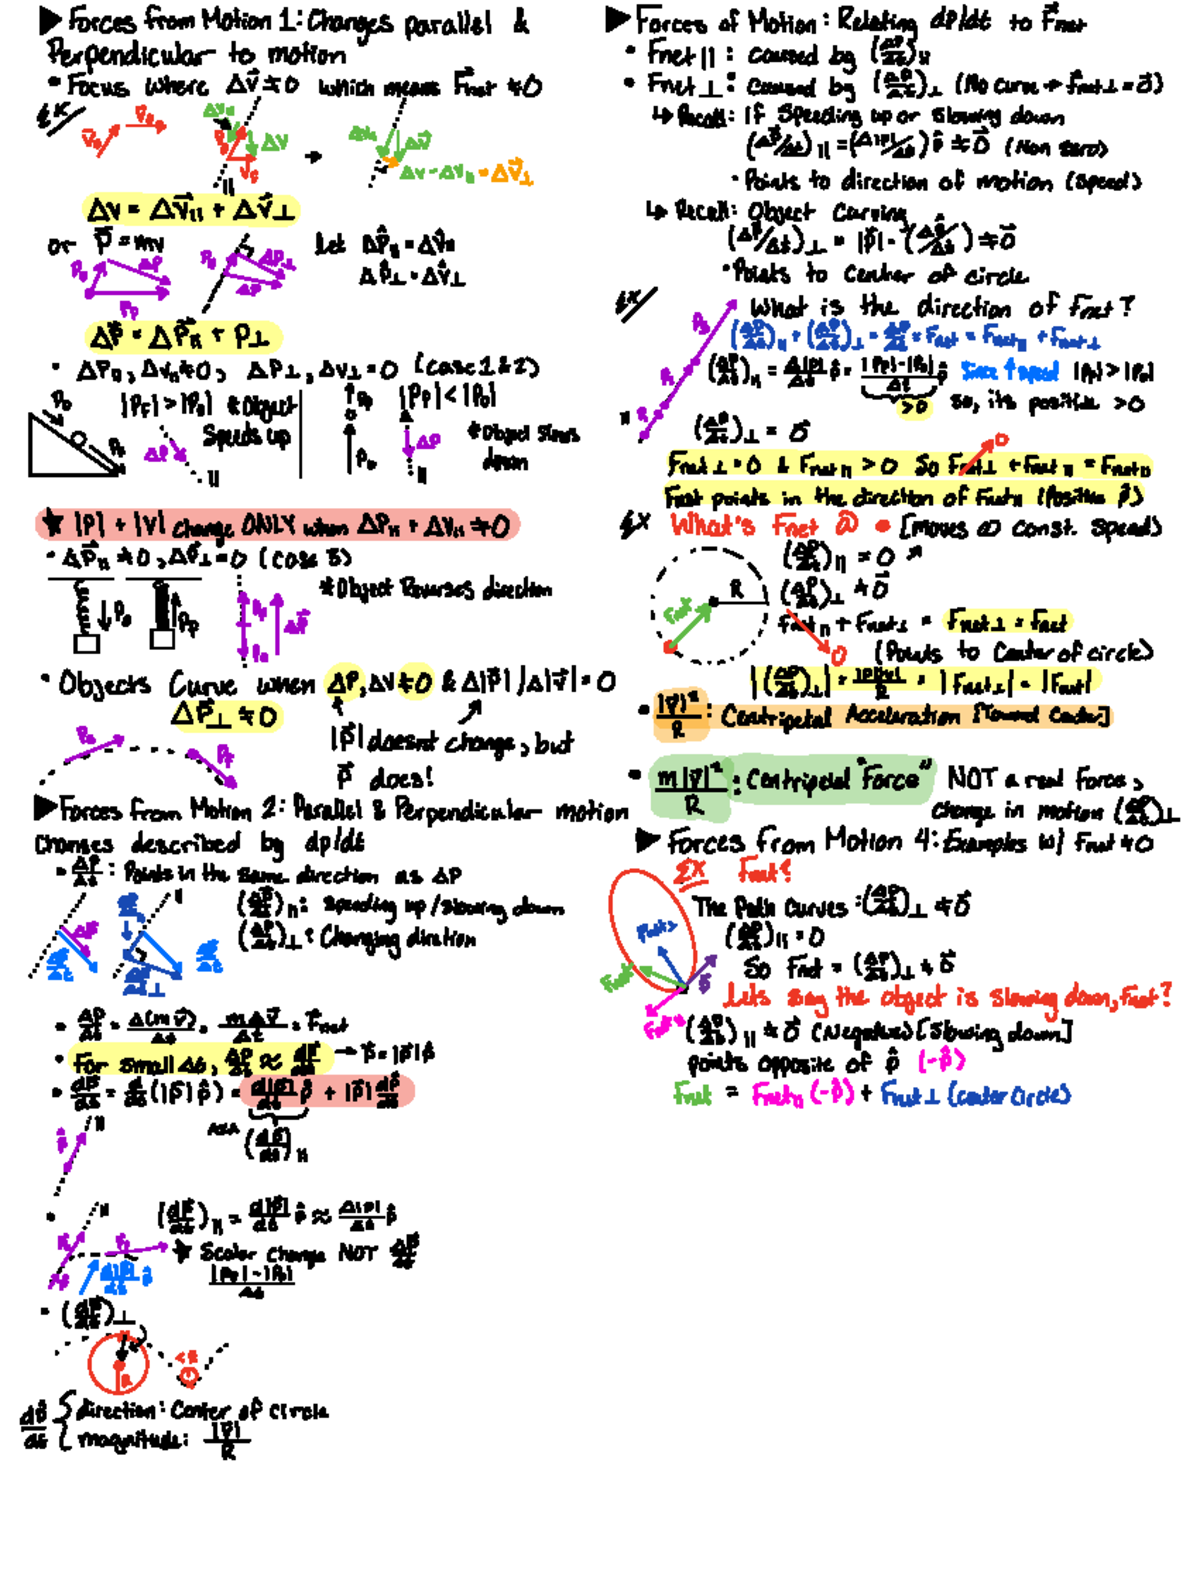 ▶Forces from Motion 1: Changes parallel &
Perpendicular to motion
• Focus where Δv⃗ ≠ 0 which means F⃗net ≠ 0
Ex
Δv = Δv⃗∥ + Δv⃗⊥
or p⃗ = mv
Let Δp̂∥ = Δv̂∥
Δp̂⊥ = Δv̂⊥
Δp⃗ = Δp⃗∥ + p⊥
• ΔP∥, Δv∥ ≠ 0, ΔP⊥, Δv⊥ = 0 (Case 1 & 2)
|PF| > |P0| *Object
Speeds up
|PF| < |P0|
*Object slows
down
★ |P| + |V| change ONLY when ΔP∥ + ΔV∥ ≠ 0
• ΔP⃗∥ ≠ 0, ΔP⃗⊥ = 0 (case 3)
*Object Reverses direction
• Objects Curve when ΔP, ΔV ≠ 0 & Δ|p⃗| / Δ|v⃗| = 0
ΔP⃗⊥ ≠ 0
|p⃗| doesnt change, but
p⃗ does!
▶Forces from Motion 2: Parallel & Perpendicular motion
Changes described by dp/dt
• ΔP/Δt : Points in the same direction as ΔP
(Δp⃗/Δt)∥: speeding up/slowing down
(Δp⃗/Δt)⊥: Changing direction
• ΔP/Δt = Δ(mv⃗)/Δt = mΔv⃗/Δt = F⃗net
• For small Δt, Δp/Δt ≈ dp⃗/dt → p⃗ = |p⃗|p̂
• dp⃗/dt = d/dt (|p⃗| p̂) = d|p⃗|/dt p̂ + |p⃗| dp̂/dt
AKA (dp⃗/dt)∥
• (dp⃗/dt)∥ = d|p⃗|/dt p̂ ≈ Δ|p|/Δt p̂
★ Scalar change NOT Δp⃗/Δt
|PF| - |P0| / Δt
• (dp⃗/dt)⊥
R
dp̂/dt { direction: Center of circle
magnitude: |v⃗|/R
▶Forces of Motion: Relating dp/dt to F⃗net
• Fnet ∥: caused by (Δp⃗/Δt)∥
• Fnet ⊥: caused by (Δp⃗/Δt)⊥ (No curve → fnet⊥ = 0⃗)
↳ Recall: If Speeding up or slowing down
(Δp⃗/Δt)∥ = (Δ|p|/Δt) p̂ ≠ 0⃗ (Non zero)
• Points to direction of motion (speed)
↳ Recall: Object Curving
(Δp⃗/Δt)⊥ = |p⃗| · (Δp̂/Δt) ≠ 0⃗
• Points to center of circle
Ex What is the direction of Fnet?
(Δp/Δt)∥ + (Δp/Δt)⊥ = Δp/Δt = Fnet = Fnet∥ + Fnet⊥
(Δp/Δt)∥ = Δ|p|/Δt p̂ = |PF| - |P0| / Δt p̂ since ↑ speed |PF| > |P0|
>0 so, its positive >0
(Δp/Δt)⊥ = 0⃗
Fnet⊥ = 0 & Fnet∥ > 0 So Fnet⊥ + Fnet∥ = Fnet∥
0
Fnet points in the direction of Fnet∥ (Positive p̂)
Ex What's Fnet @ ● [moves @ const. speed)
(Δp/Δt)∥ = 0
R
(Δp/Δt)⊥ ≠ 0⃗
Fnet
fnet∥ + Fnet⊥ = Fnet⊥ = fnet
0
(Points to Center of circle)
|(Δp/Δt)⊥| = |P||v|/R = |Fnet⊥| = |Fnet|
• |v⃗|²/R : Centripetal Acceleration [Toward Center]
• m|v⃗|²/R : Centripetal "Force" NOT a real force,
change in motion (Δp/Δt)⊥
▶ Forces from Motion 4: Examples w/ Fnet ≠ 0
Ex Fnet?
The Path Curves: (Δp/Δt)⊥ ≠ 0⃗
(Δp/Δt)∥ = 0
So Fnet = (Δp/Δt)⊥ ≠ 0⃗
Lets say the object is slowing down, Fnet?
(Δp/Δt)∥ ≠ 0⃗ (Negative) [Slowing down]
points opposite of p̂ (-p̂)
Fnet = Fnet∥ (-p̂) + Fnet⊥ (center circle)